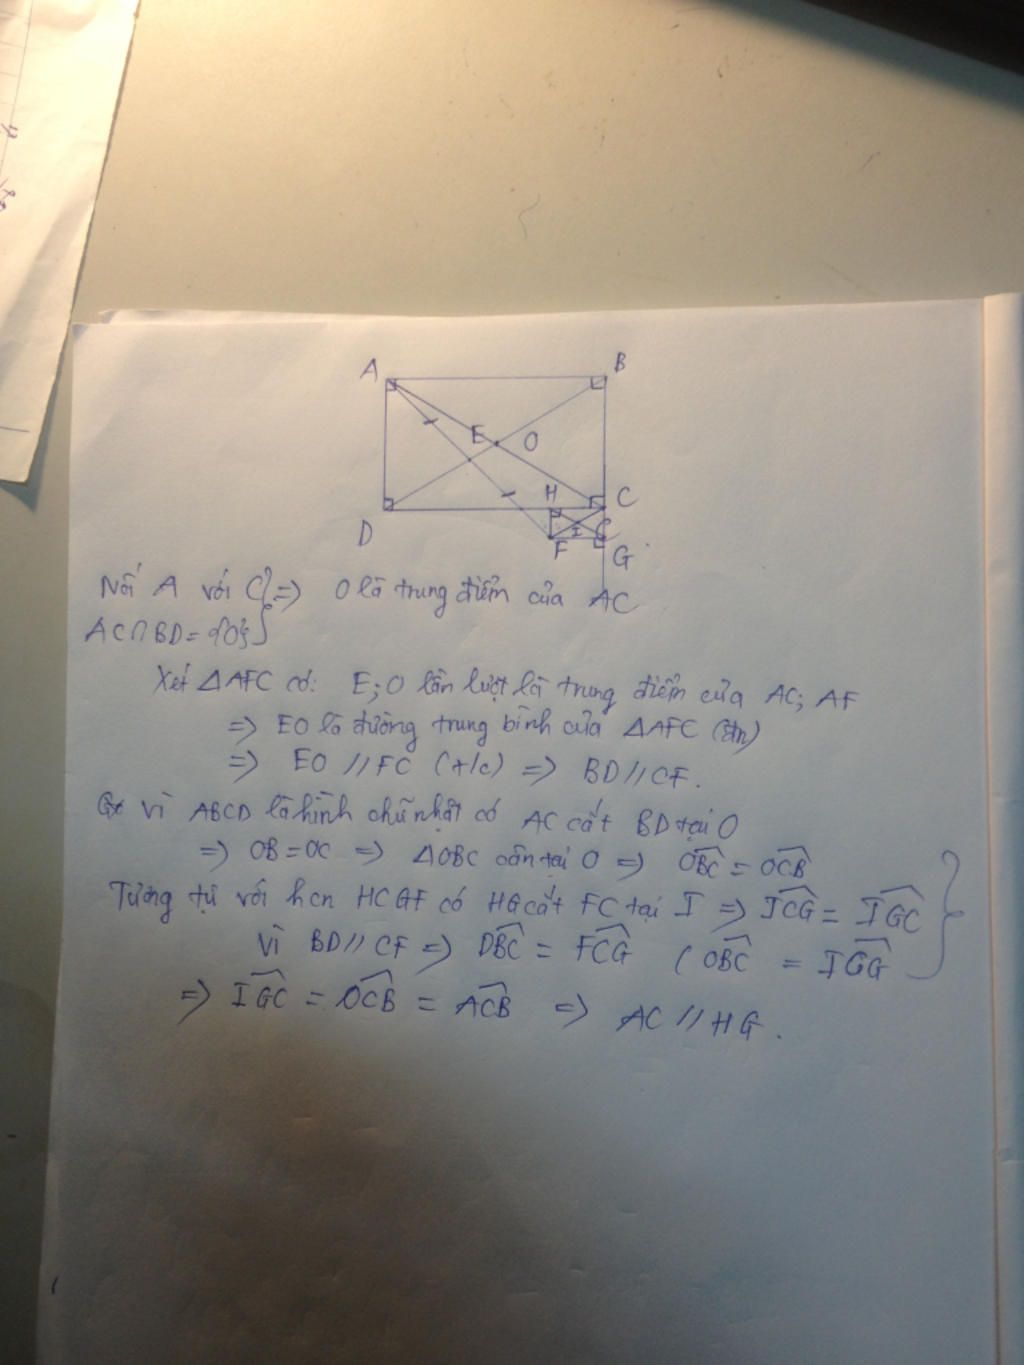 A
B
E
O
H
C
D
I
F
G
Nối A với C } => O là trung điểm của AC
AC∩BD = {O}
Xét △AFC có: E; O lần lượt là trung điểm của AC; AF
=> EO là đường trung bình của △AFC (đn)
=> EO // FC (t/c) => BD // CF.
Vì ABCD là hình chữ nhật có AC cắt BD tại O
=> OB = OC => △OBC cân tại O => OBC = OCB
Tương tự với hcn HCGF có HG cắt FC tại I => ICG = IGC
Vì BD // CF => DBC = FCG ( OBC = IGG
=> IGC = OCB = ACB => AC // HG.